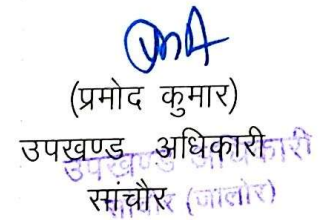 (प्रमोद कुमार)
उपखण्ड अधिकारी
सांचौर
उपखण्ड अधिकारी
(जालोर)